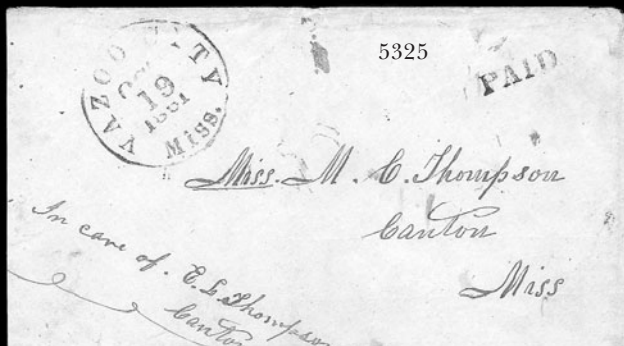 YAZOO CITY
Miss.
OCT
19
1861
5325
PAID
Miss. M. C. Thompson
Canton
Miss
In care of. E. L. Thompson
Canton